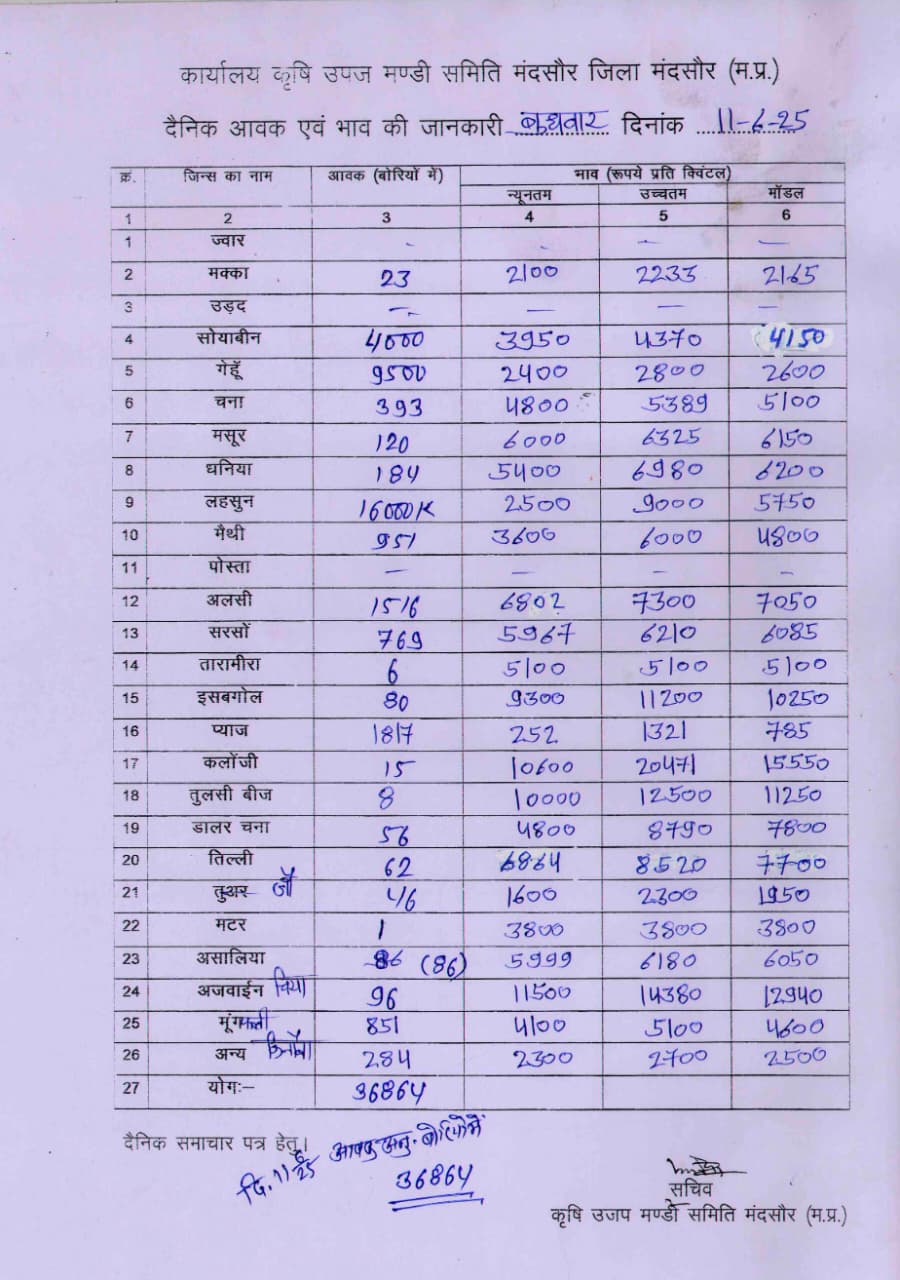 कार्यालय कृषि उपज मण्डी समिति मंदसौर जिला मंदसौर (म.प्र.)
दैनिक आवक एवं भाव की जानकारी बुधवार दिनांक 11-6-25
क्र. जिन्स का नाम आवक (बोरियों में) भाव (रूपये प्रति क्विंटल)
न्यूनतम उच्चतम मॉडल
1 2 3 4 5 6
1 ज्वार - - - -
2 मक्का 23 2100 2233 2165
3 उड़द - - - -
4 सोयाबीन 4000 3950 4370 4150
5 गेहूँ 9500 2400 2800 2600
6 चना 393 4800 5389 5100
7 मसूर 120 6000 6325 6150
8 धनिया 184 5400 6980 6200
9 लहसुन 16000K 2500 9000 5750
10 मैथी 951 3600 6000 4800
11 पोस्ता - - - -
12 अलसी 1516 6802 7300 7050
13 सरसों 769 5967 6210 6085
14 तारामीरा 6 5100 5100 5100
15 इसबगोल 80 9300 11200 10250
16 प्याज 1817 252 1321 785
17 कलोंजी 15 10600 20471 15550
18 तुलसी बीज 8 10000 12500 11250
19 डालर चना 56 4800 8790 7800
20 तिल्ली 62 6864 8520 7700
21 तुअर जौ 46 1600 2300 1950
22 मटर 1 3800 3800 3800
23 असालिया 86 (86) 5999 6180 6050
24 अजवाईन चिया 96 11500 14380 12940
25 मूंगफली 851 4100 5100 4600
26 अन्य 284 2300 2700 2500
27 योगः- 36864
दैनिक समाचार पत्र हेतु।
दि. 11 6/25 आवक बोरियोंमें
36864
सचिव
कृषि उजप मण्डी समिति मंदसौर (म.प्र.)